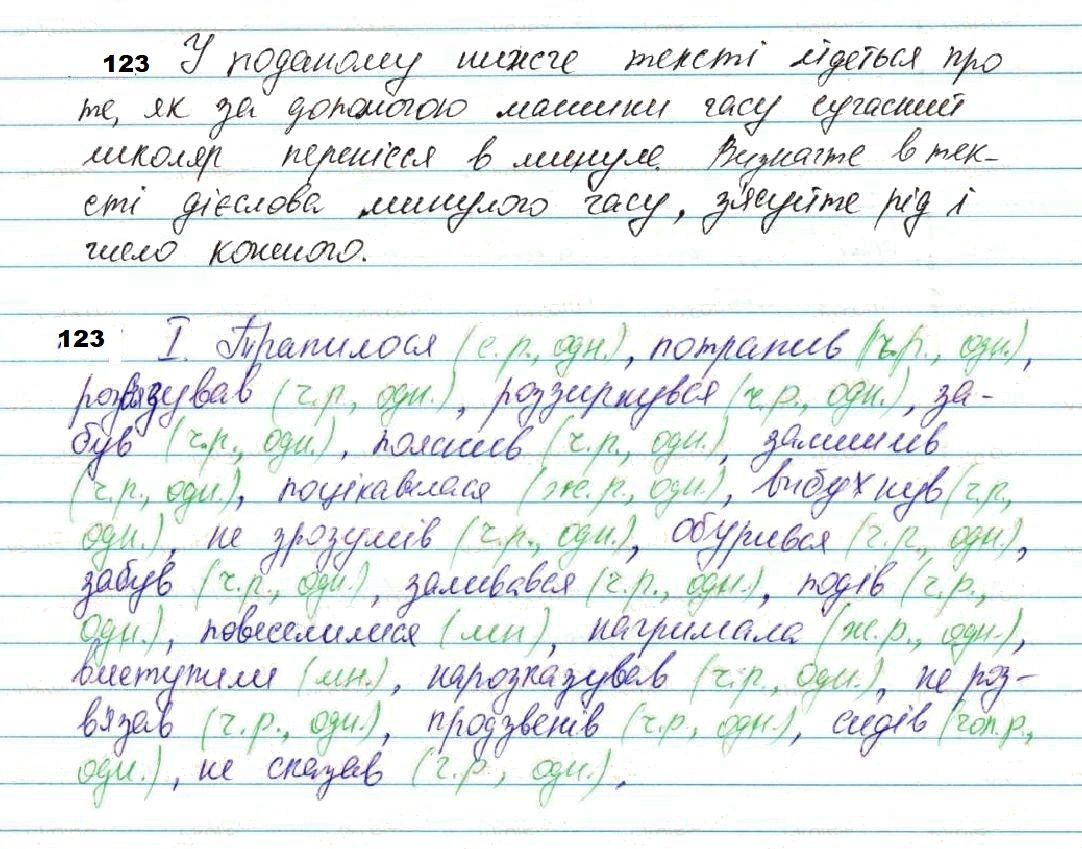 123 У поданому нижче тексті йдеться про
те, як за допомогою машини часу сучасний
школяр перенісся в минуле. Визначте в тек-
сті дієслова минулого часу, з'ясуйте рід і
число кожного.
123 I. Трапилося (с.р., одн.), потрапив (ч.р., одн.),
розвязував (ч.р., одн.), роззирнувся (ч.р., одн.), за-
був (ч.р., одн.), пояснив (ч.р., одн.), залишив
(ч.р., одн.), поцікавилася (ж.р., одн.), вибухнув (ч.р.,
одн.), не зрозумів (ч.р., одн.), обурився (ч.р., одн.),
забув (ч.р., одн.), заливався (ч.р., одн.), подів (ч.р.,
одн.), повеселилися (мн), нагримала (ж.р., одн.),
виступили (мн.), нарозказував (ч.р., одн.), не роз-
вязав (ч.р., одн.), продзвенів (ч.р., одн.), сидів (чол.р.,
одн.), не сказав (ч.р., одн.).